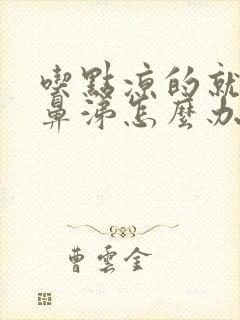 喫點涼的就
鼻涕怎麼办
曹雲金